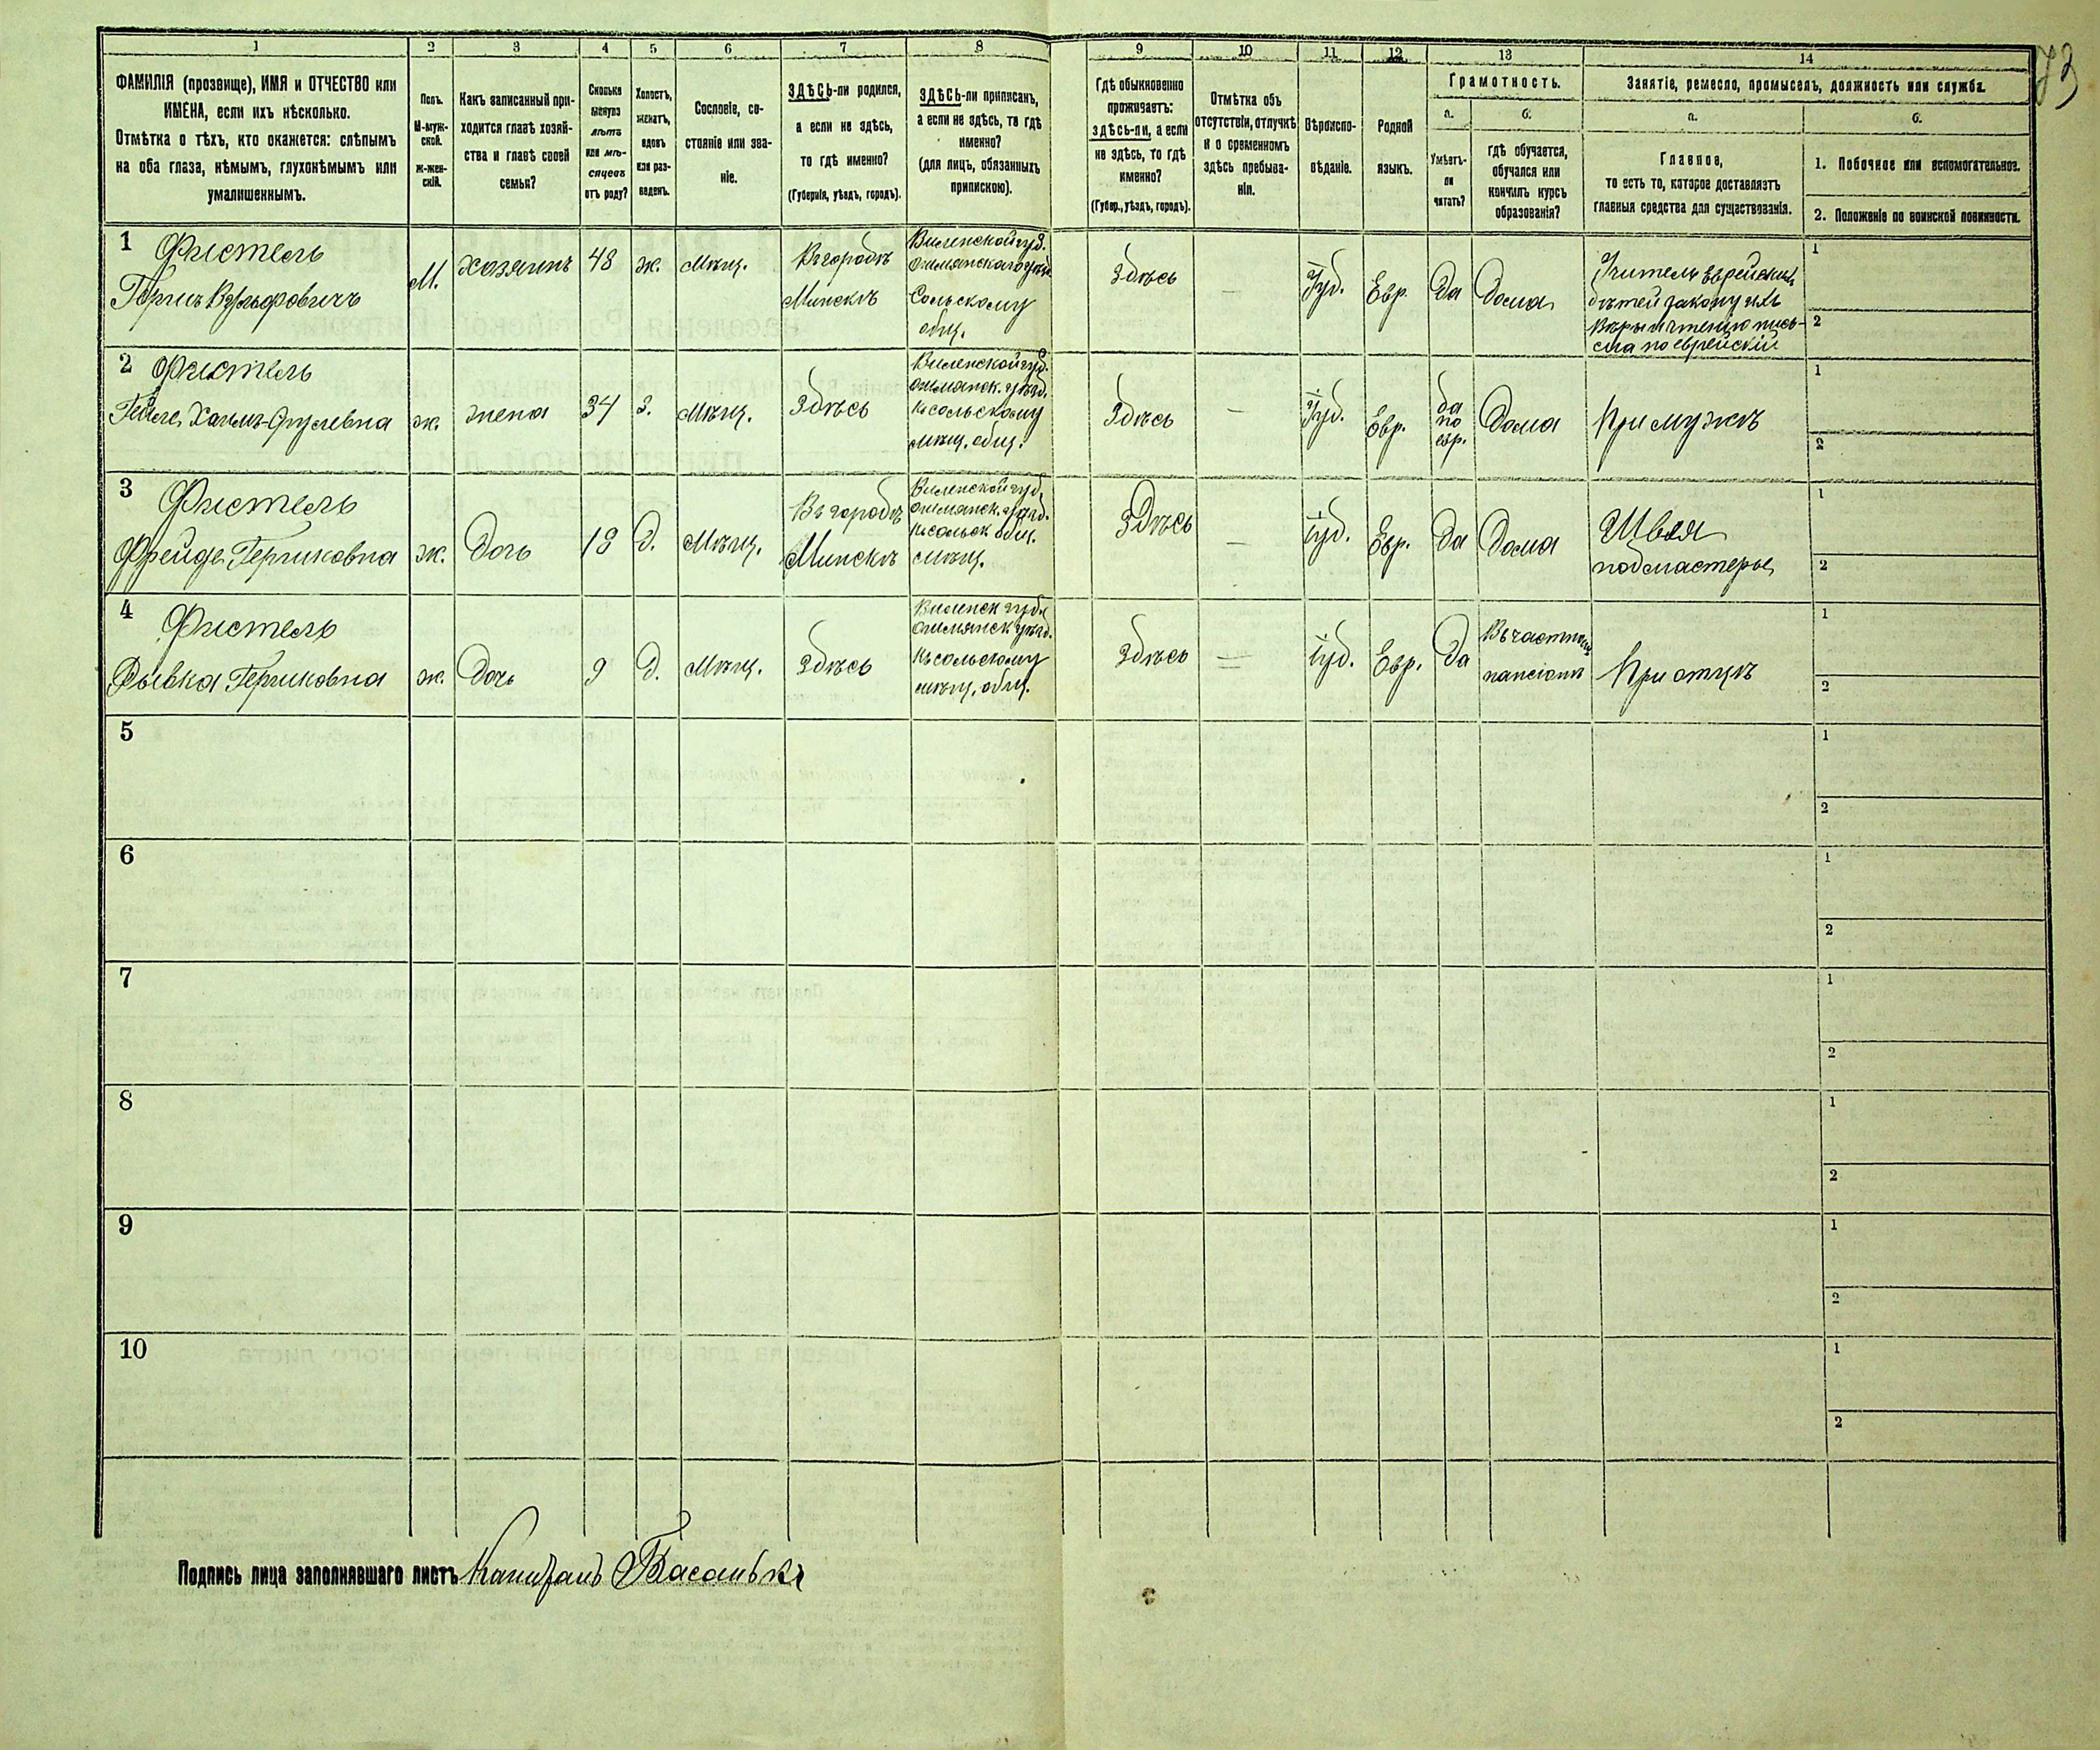 73
1 2 3 4 5 6 7 8 9 10 11 12 13 14
ФАМИЛІЯ (прозвище), ИМЯ и ОТЧЕСТВО или
ИМЕНА, если ихъ нѣсколько.
Отмѣтка о тѣхъ, кто окажется: слѣпымъ
на оба глаза, нѣмымъ, глухонѣмымъ или
умалишеннымъ.
Полъ.
М-муж-
ской.
Ж-жен-
скій.
Какъ записанный при-
ходится главѣ хозяй-
ства и главѣ своей
семьи?
Сколько
минуло
лѣтъ
или мѣ-
сяцевъ
отъ роду?
Холостъ,
женатъ,
вдовъ
или раз-
веденъ.
Сословіе, со-
стояніе или зва-
ніе.
ЗДѢСЬ-ли родился,
а если не здѣсь,
то гдѣ именно?
(Губернія, уѣздъ, городъ).
ЗДѢСЬ-ли приписанъ,
а если не здѣсь, то гдѣ
именно?
(для лицъ, обязанныхъ
припискою).
Гдѣ обыкновенно
проживаетъ:
здѣсь-ли, а если
не здѣсь, то гдѣ
именно?
(Губер., уѣздъ, городъ).
Отмѣтка объ
отсутствіи, отлучкѣ
и о временномъ
здѣсь пребыва-
ніи.
Вѣроиспо-
вѣданіе.
Родной
языкъ.
Грамотность.
а.
Умѣетъ-
ли
читать?
б.
гдѣ обучается,
обучался или
кончилъ курсъ
образованія?
Занятіе, ремесло, промыселъ, должность или служба.
а.
Главное,
то есть то, которое доставляетъ
главныя средства для существованія.
б.
1. Побочное или вспомогательное.
2. Положеніе по воинской повинности.
1
Фистель
Гершъ Вульфовичъ
М.
хозяинъ
48
ж.
мѣщ.
Въ городѣ
Минскѣ
Виленской губ.
Ошмянскаго уѣзд.
Сольскому
общ.
Здѣсь
—
Іуд.
Евр.
Да
Дома
Учитель Еврейскихъ
дѣтей закону ихъ
вѣры и чтенію пись-
ма по еврейски
1
2
2
Фистель
Хаимъ-Срулевна
ж.
жена
34
З.
мѣщ.
Здѣсь
Виленской губ.
ошмянск. уѣзд.
къ сольскому
мѣщ. общ.
Здѣсь
—
Іуд.
Евр.
да
по
евр.
Дома
При мужѣ
1
2
3
Фистель
Фрейде Гершковна
ж.
Дочь
18
Д.
Мѣщ.
Въ городѣ
Минскѣ
Виленской губ.
ошмянск. уѣзд.
къ сольск общ.
мѣщ.
Здѣсь
—
Іуд.
Евр.
Да
Дома
Швея
подмастерье
1
2
4
Фистель
Рывка Гершковна
ж.
Дочь
9
Д.
Мѣщ.
Здѣсь
Виленск губ.
ошмянск уѣзд.
къ сольскому
мѣщ. общ.
Здѣсь
—
Іуд.
Евр.
Да
Въ частном
пансіонѣ
При отцѣ
1
2
5
1
2
6
1
2
7
1
2
8
1
2
9
1
2
10
1
2
Подпись лица заполнявшаго листъ